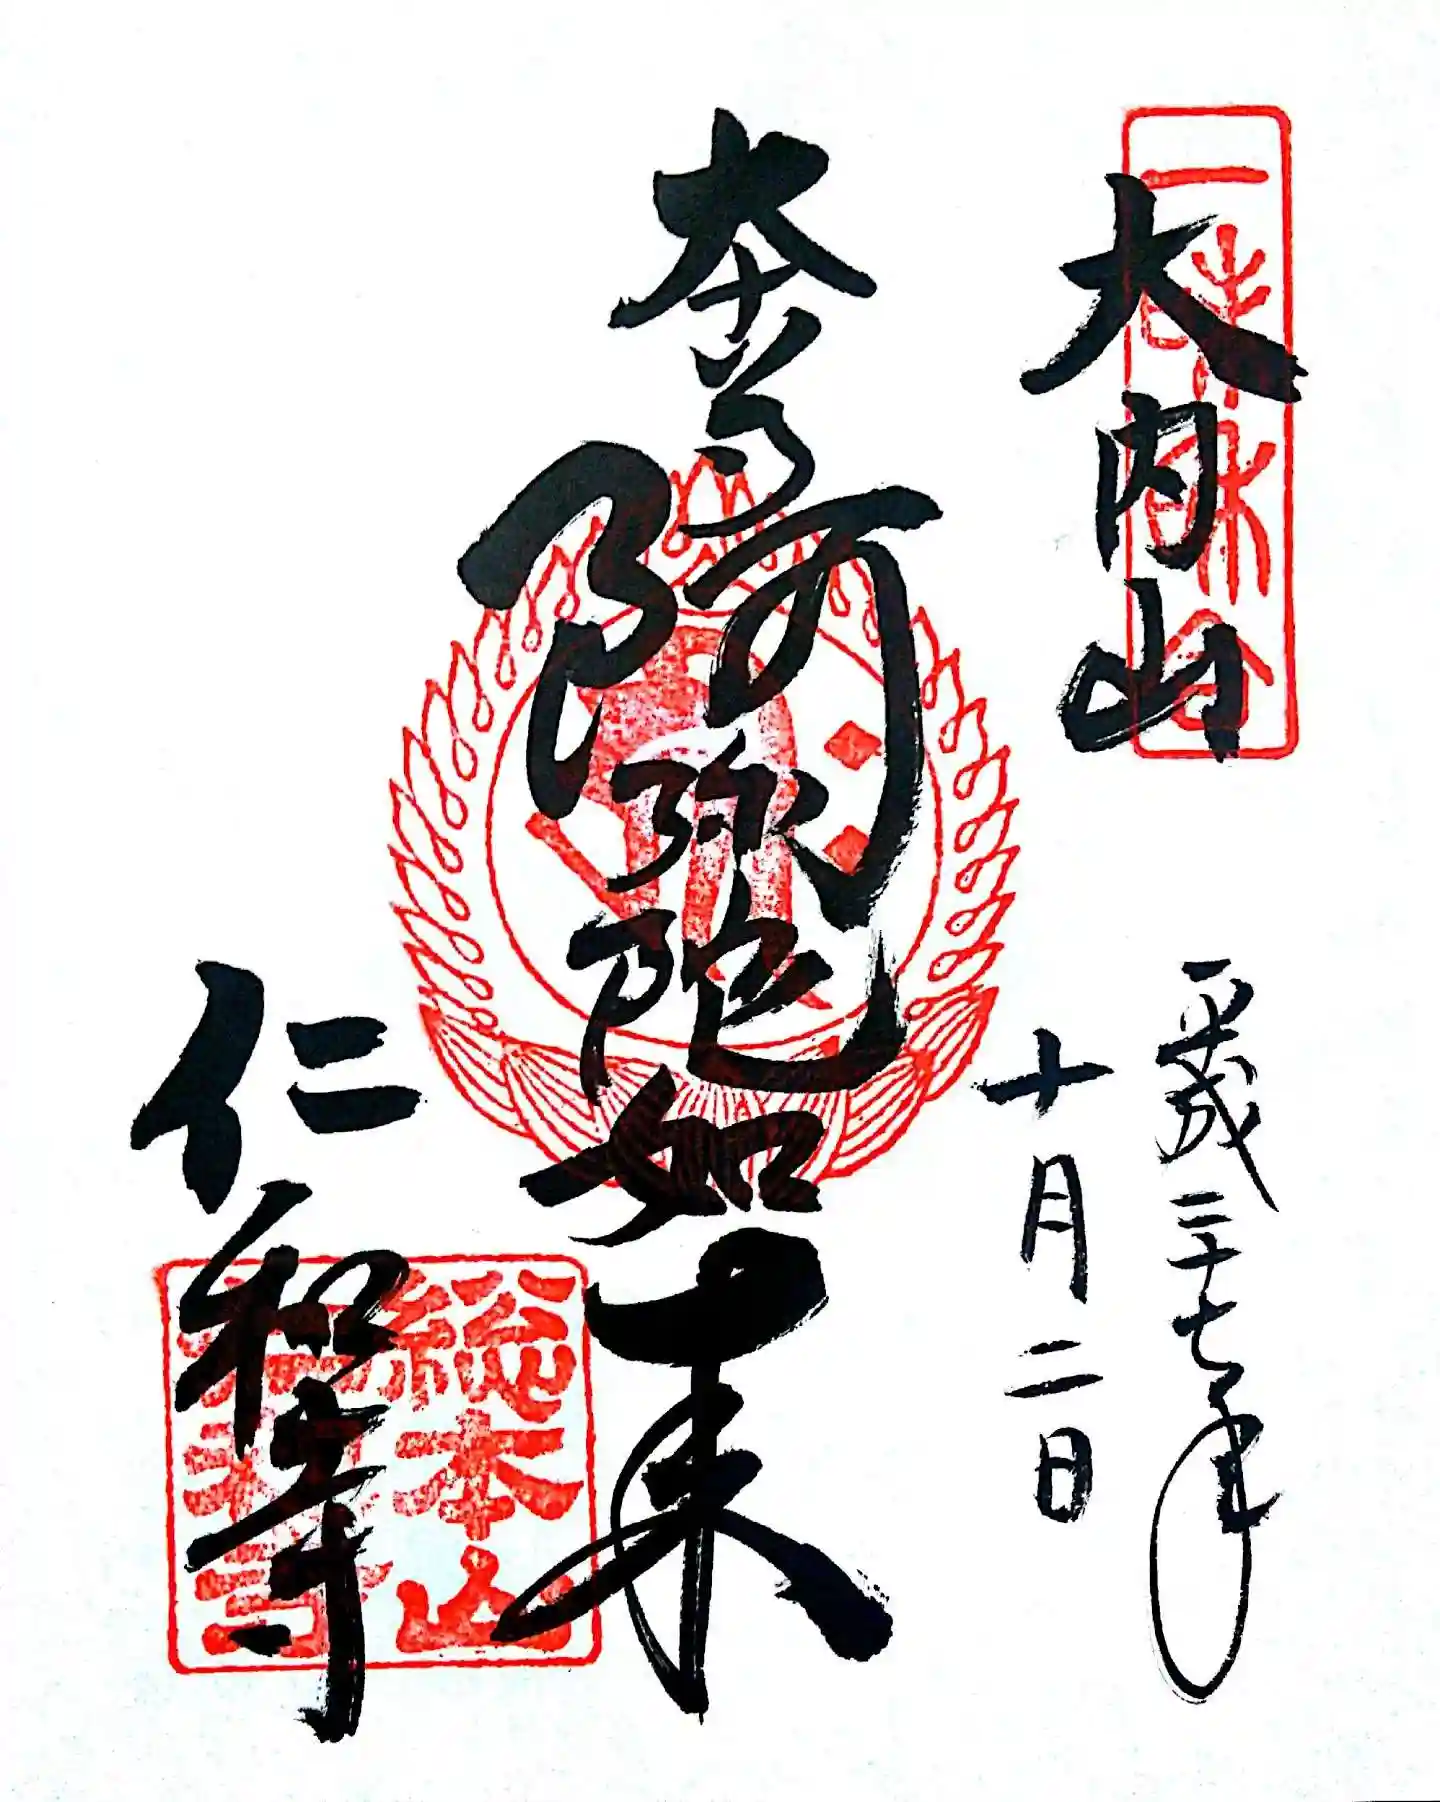 大内山
平成二十七年
十月二日
本尊
阿弥陀如来
仁和寺
総本山
仁和寺